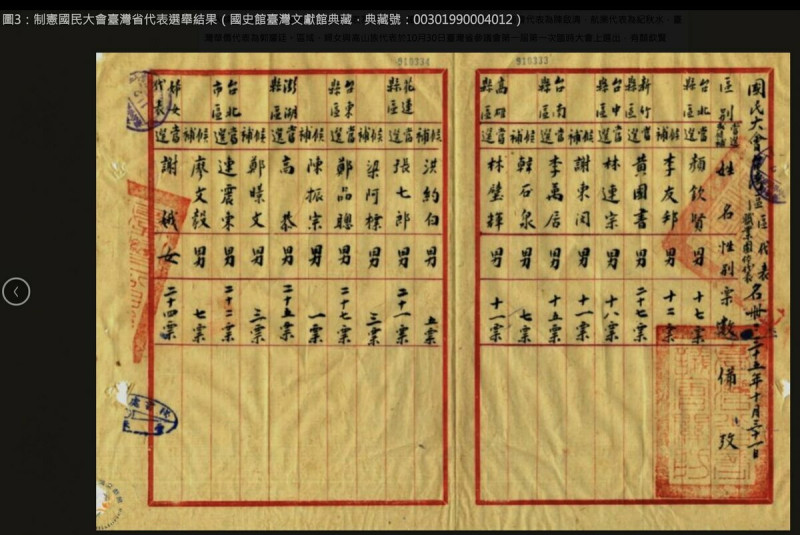 圖3：制憲國民大會臺灣省代表選舉結果（國史館臺灣文獻館典藏，典藏號：00301990004012）
婦女與高山族代表於10月30日臺灣省參議會第一屆第一次臨時大會上選出
910333
910334
國民大會臺灣區區代表名冊 三十五年十月三十一日
區別 姓名 性別 票數 備攷
台北縣區 當選 顏欽賢 男 十七票
候補 李友邦 男 十二票
新竹縣區 當選 黃國書 男 二十七票
台中縣區 當選 林連宗 男 十八票
候補 謝東閔 男 十一票
台南縣區 當選 李萬居 男 十五票
候補 韓石泉 男 七票
高雄縣區 當選 林璧輝 男 十一票
候補 洪約白 男 五票
花蓮縣區 當選 張七郎 男 二十一票
候補 梁阿標 男 三票
台東縣區 當選 鄭品聰 男 二十七票
候補 陳振宗 男 一票
澎湖縣區 當選 高恭 男 二十五票
候補 鄭 文 男 三票
台北市區 當選 連震東 男 二十二票
候補 廖文毅 男 七票
婦女代表 當選 謝娥 女 二十四票